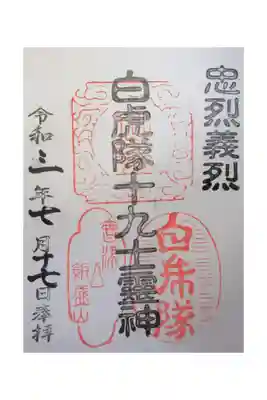 忠烈義烈
白虎隊十九士霊神
白虎隊
飯盛山
令和三年七月十七日奉拝